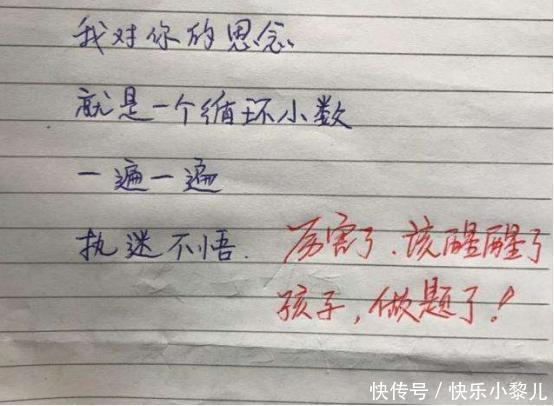 我对你的思念
就是一个循环小数
一遍一遍
执迷不悟. 厉害了.该醒醒了
孩子,做题了!
快传号/快乐小黎儿